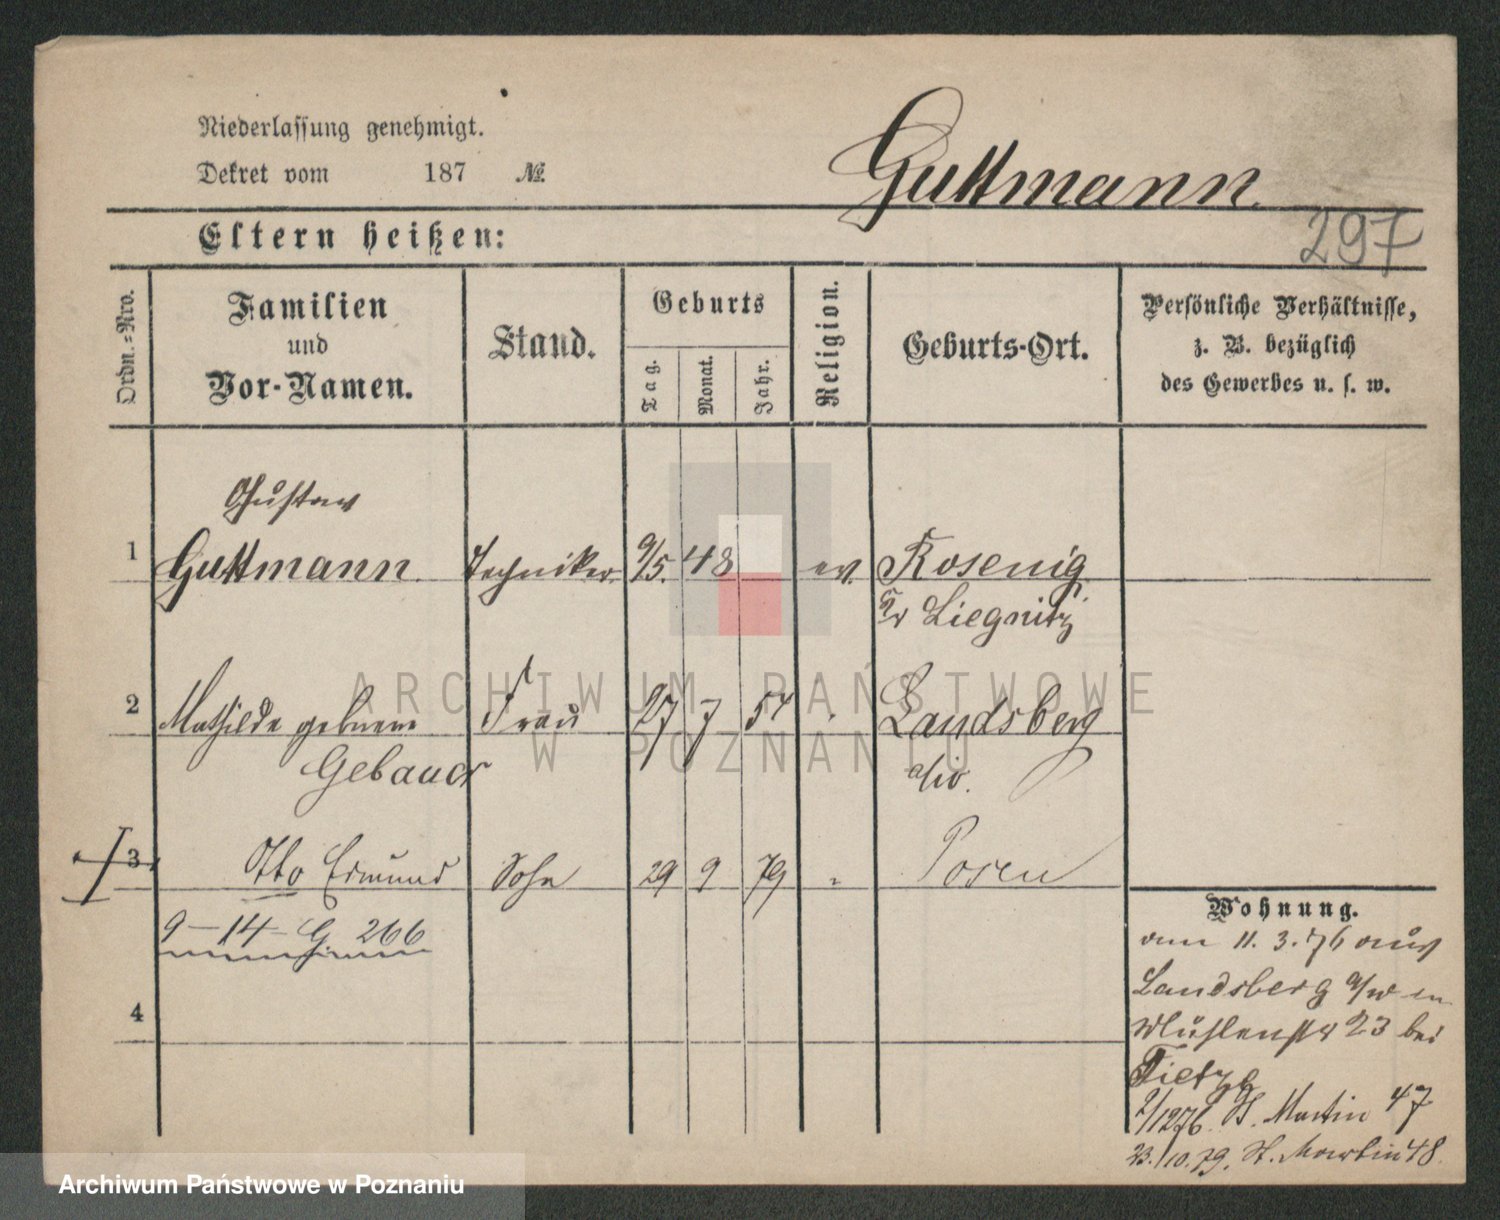 Niederlassung genehmigt.
Dekret vom 187 №
Guttmann.
297
Eltern heißen:
Ordn.-Nro.
Familien
und
Vor-Namen.
Stand.
Geburts
Tag.
Monat.
Jahr.
Religion.
Geburts-Ort.
Persönliche Verhältnisse,
z. B. bezüglich
des Gewerbes u. s. w.
Gustav
1 Guttmann. Techniker. 9/5. 48 ev. Rosenig
Kr Liegnitz
2 Mathilde geborene Frau 27 7 54 Landsberg
Gebauer
3 Otto Edmund Sohn 29 9 79 " Posen
9-14-G 266
4
Wohnung.
am 11. 3. 76 aus
Landsberg a/w in
Mühlenstr 23 bei
Tietze
1/12 76. St. Martin 47
23./10. 79. St. Martin 48.
ARCHIWUM PAŃSTWOWE
W POZNANIU
Archiwum Państwowe w Poznaniu